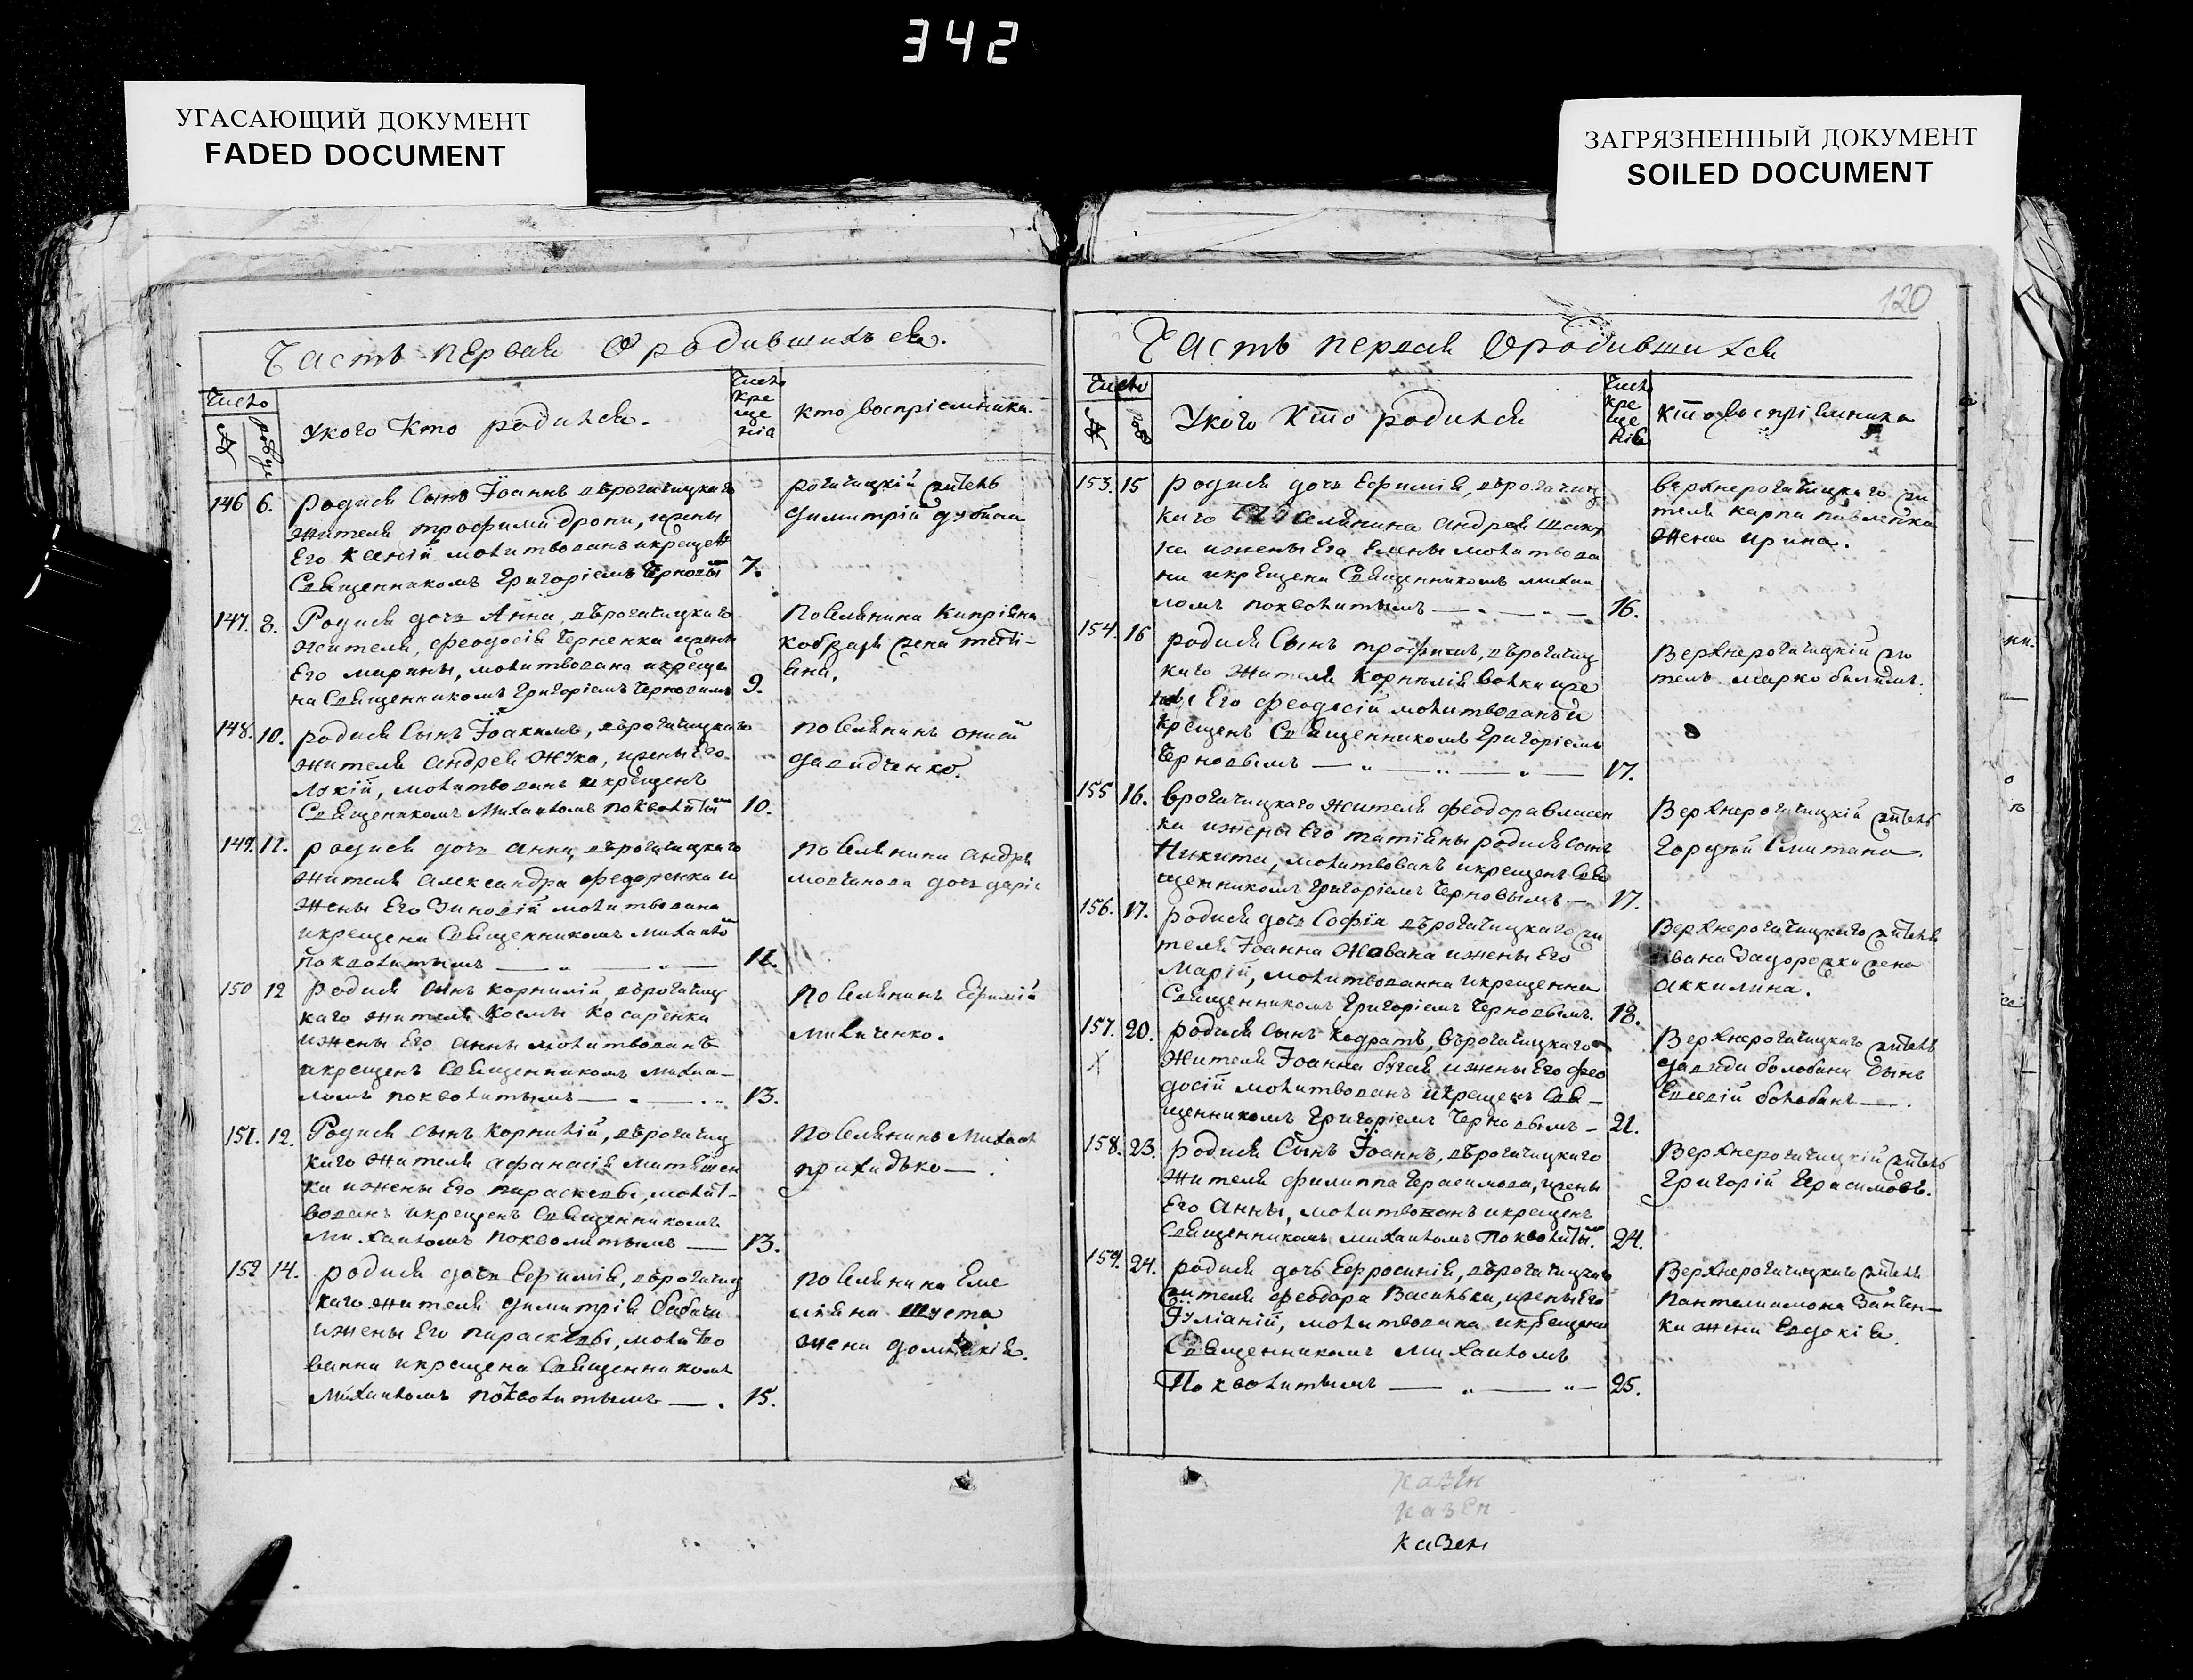 342
УГАСАЮЩИЙ ДОКУМЕНТ
FADED DOCUMENT
ЗАГРЯЗНЕННЫЙ ДОКУМЕНТ
SOILED DOCUMENT
Часть первая О родившихъся.
Число
У кого кто родился.
Число
кре
ще
нія
кто воспріемника.
146 6. родися сынъ Іоаннъ в рогачицкаго
жителя трофима дрони, жены
Его Ксеніи молитвованъ и крещен
Священникомъ Григоріемъ Черновы 7.
рогачицкій житель
димитрій дубина
147. 8. Родися дочь Анна, в рогачицкаго
жителя, феодосія Черненка жены
Его марины, молитвована и креще
на Священникомъ Григоріемъ Черновымъ 9.
поселянина Кипріяна
кобзаря жена тати-
яна.
148. 10. родися сынъ Іоакимъ, в рогачицкаго
жителя андрея Жука, жены Его
молитвованъ и крещенъ
Священникомъ Михаиломъ похвалиты 10.
поселянинъ
давидченко.
149. 11. родися дочь анна, в рогачицкаго
жителя александра федоренка и
жены Его Зиновіи молитвована
и крещена Священникомъ Михаило
похвалитымъ 11.
поселянина андрея
молчанова дочь дарія
150 12 родися сынъ корнилій, в рогачиц
каго жителя Космы Косаренка
и жены Его анны молитвованъ
и крещенъ Священникомъ михаи-
ломъ похвалитымъ 13.
поселянинъ Ефимій
михиченко.
151. 12. Родися сынъ Корнилій, в рогачиц
каго жителя афанасія
ка и жены Его параскевы, молит-
вованъ и крещенъ Священникомъ
михаиломъ похвалитымъ 13.
поселянинъ Михаил
приходько
152 14. родися дочь Ефимія, в рогачиц
каго жителя димитрія бабича
и жены Его параскевы, молитво
ванна и крещена Священникомъ
михаиломъ похвалитымъ 15.
поселянина Еме
ліяна шуста
жена
120
Часть первая О родившихся
Число
У кого кто родился
Число
кре
ще
нія
кто воспріемника
153. 15 родися дочь Ефимія, в рогачиц
каго поселянина андрея
ка и жены Его Елены молитвова
на и крещена Священникомъ михаи
ломъ похвалитымъ 16.
верхнерогачицкаго жи
теля карпа павленка
жена ирина.
154. 16 родися сынъ трофимъ, в рогачиц
каго жителя корнилія волка и же
ны Его феодосіи молитвованъ и
крещенъ Священникомъ Григоріемъ
Черновымъ 17.
Верхнерогачицкій жи
тель марко
155 16. в рогачицкаго жителя феодора власен
ка и жены Его татіяны родися сынъ
Никита, молитвованъ и крещенъ Свя
щенникомъ Григоріемъ Черновымъ 17.
Верхнерогачицкій житель
Гордѣй Смитана.
156. 17. родися дочь Софія в рогачицкаго жи
теля Іоанна Жована и жены Его
Маріи, молитвованна и крещенна
Священникомъ Григоріемъ Черновымъ. 18.
Верхнерогачицкаго жителя
ивана жена
аккилина.
157. 20. родися сынъ Кодратъ, в рогачицкаго
жителя Іоанна бугая и жены Его фео
досіи молитвованъ и крещенъ Свя-
щенникомъ Григоріемъ Черновымъ 21.
Верхнерогачицкаго житель
давида болобана сынъ
болобанъ
158. 23. родися Сынъ Іоаннъ, в рогачицкаго
жителя филиппа Герасимова, жены
Его Анны, молитвованъ и крещенъ
Священникомъ михаиломъ похвалиты. 24.
Верхнерогачицкій житель
Григорій Герасимовъ.
159. 24. родися дочь Ефросинія, в рогачицкаго
жителя феодора Василька, жены Его
Іуліаніи, молитвована и крещена
Священникомъ михаиломъ
Похвалитымъ 25.
Верхнерогачицкаго жителя
Пантелиимона
ка жена Евдокія.
казен
казен
казен